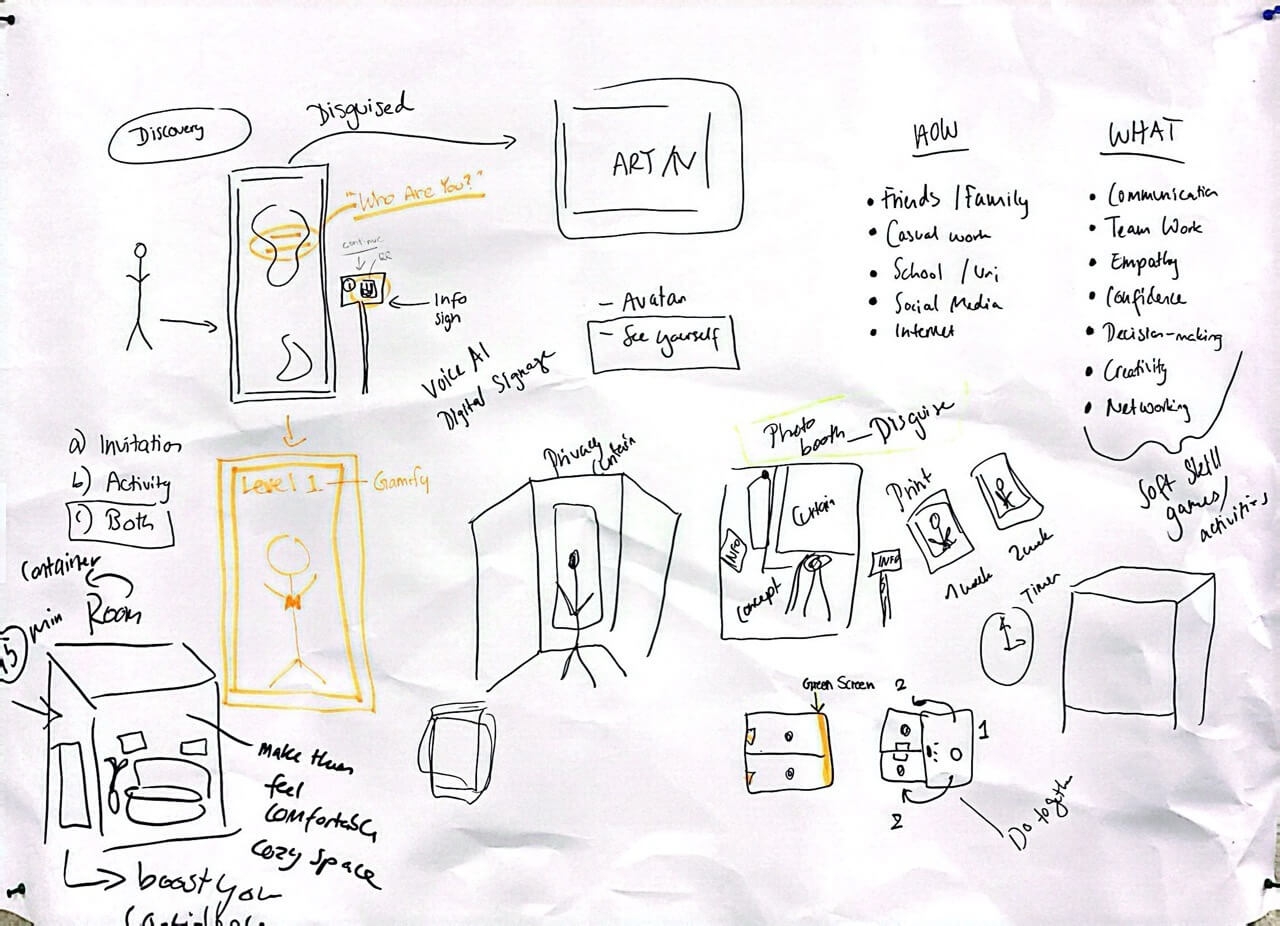 Discovery
Disguised
"Who Are You?"
continue
QR
Info
sign
ART /N
- Avatar
- See yourself
Voice AI
Digital Signage
HOW
• Friends / Family
• Casual work
• School / Uni
• Social Media
• Internet
WHAT
• Communication
• Team Work
• Empathy
• Confidence
• Decision-making
• Creativity
• Networking
Soft Skill
games/
activities
a) Invitation
b) Activity
c) Both
Level 1
Gamify
Privacy
Curtain
Photo
booth
Disguise
Curtain
INFO
Concept
INFO
Print
1 week
2 week
Timer
Container
Room
min
make them
feel
comfortable
cozy space
boost your
Green Screen
2
1
2
Do together